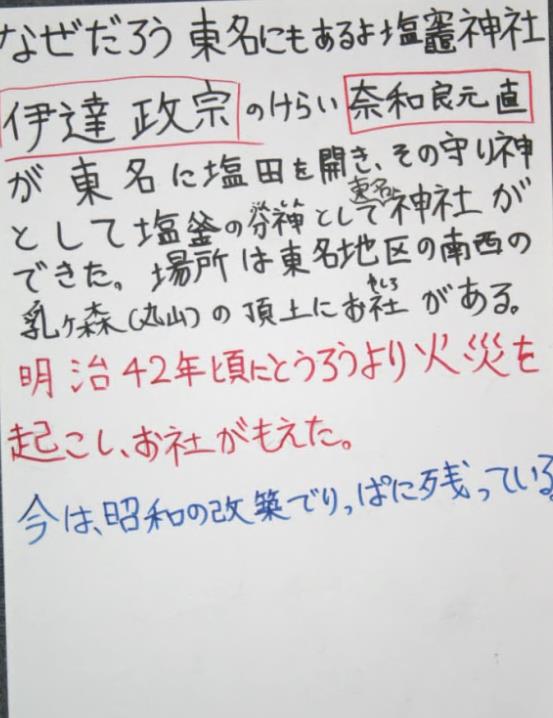 なぜだろう 東名にもあるよ塩竈神社
伊達 政宗 のけらい 奈和良元直
が 東名に塩田を開き、その守り神
として塩釜の分神として東名に神社が
できた。場所は東名地区の南西の
乳ヶ森(丸山)の頂上にお社がある。
明治42年頃にとうろうより火災を
起こし、お社がもえた。
今は、昭和の改築でりっぱに残っている